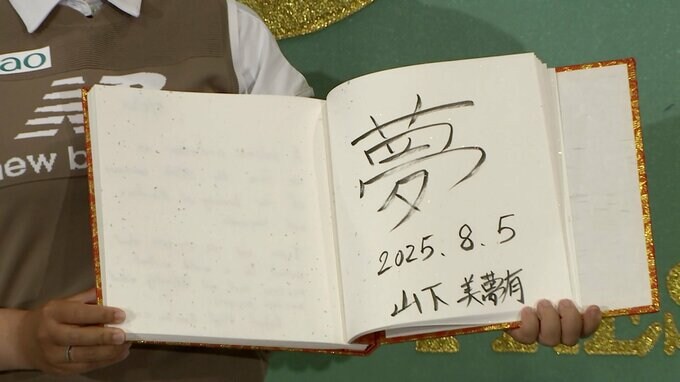 ao
NB
new b
夢
2025.8.5
山下 美夢有